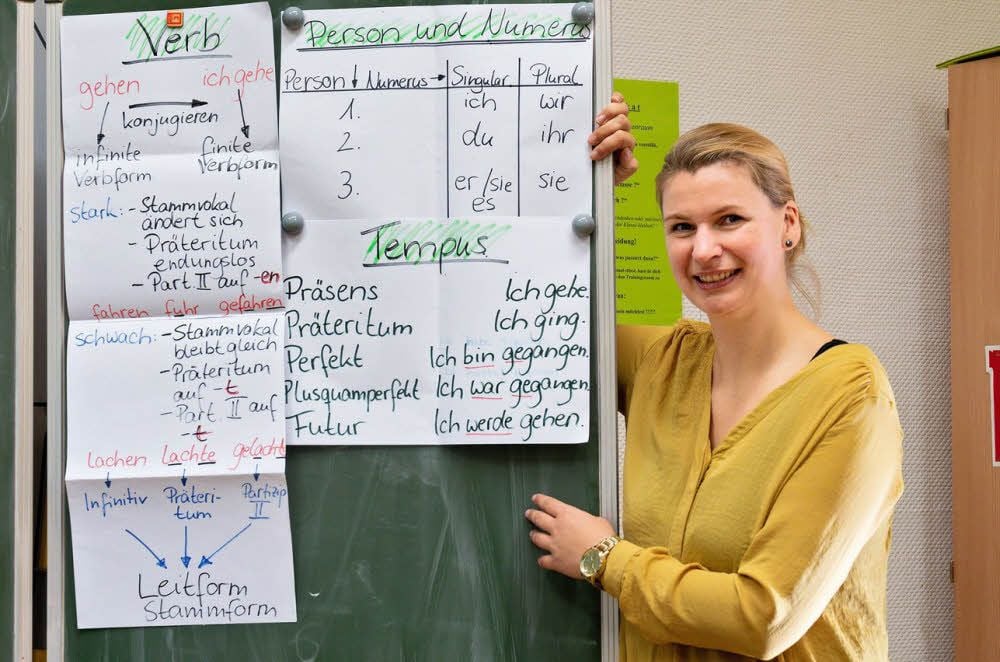 Verb
gehen ich gehe
konjugieren
infinite finite
Verbform Verbform
stark: - Stammvokal
ändert sich
- Präteritum
endungslos
- Part. II auf -en
fahren fuhr gefahren
schwach: - Stammvokal
bleibt gleich
- Präteritum
auf -t
- Part. II auf
-t
lachen lachte gelacht
Infinitiv Präteri- Partizip
tum II
Leitform
Stammform
Person und Numerus
Person Numerus Singular Plural
1. ich wir
2. du ihr
3. er/sie sie
es
Tempus
Präsens Ich gehe.
Präteritum Ich ging.
Perfekt Ich bin gegangen.
Plusquamperfekt Ich war gegangen.
Futur Ich werde gehen.